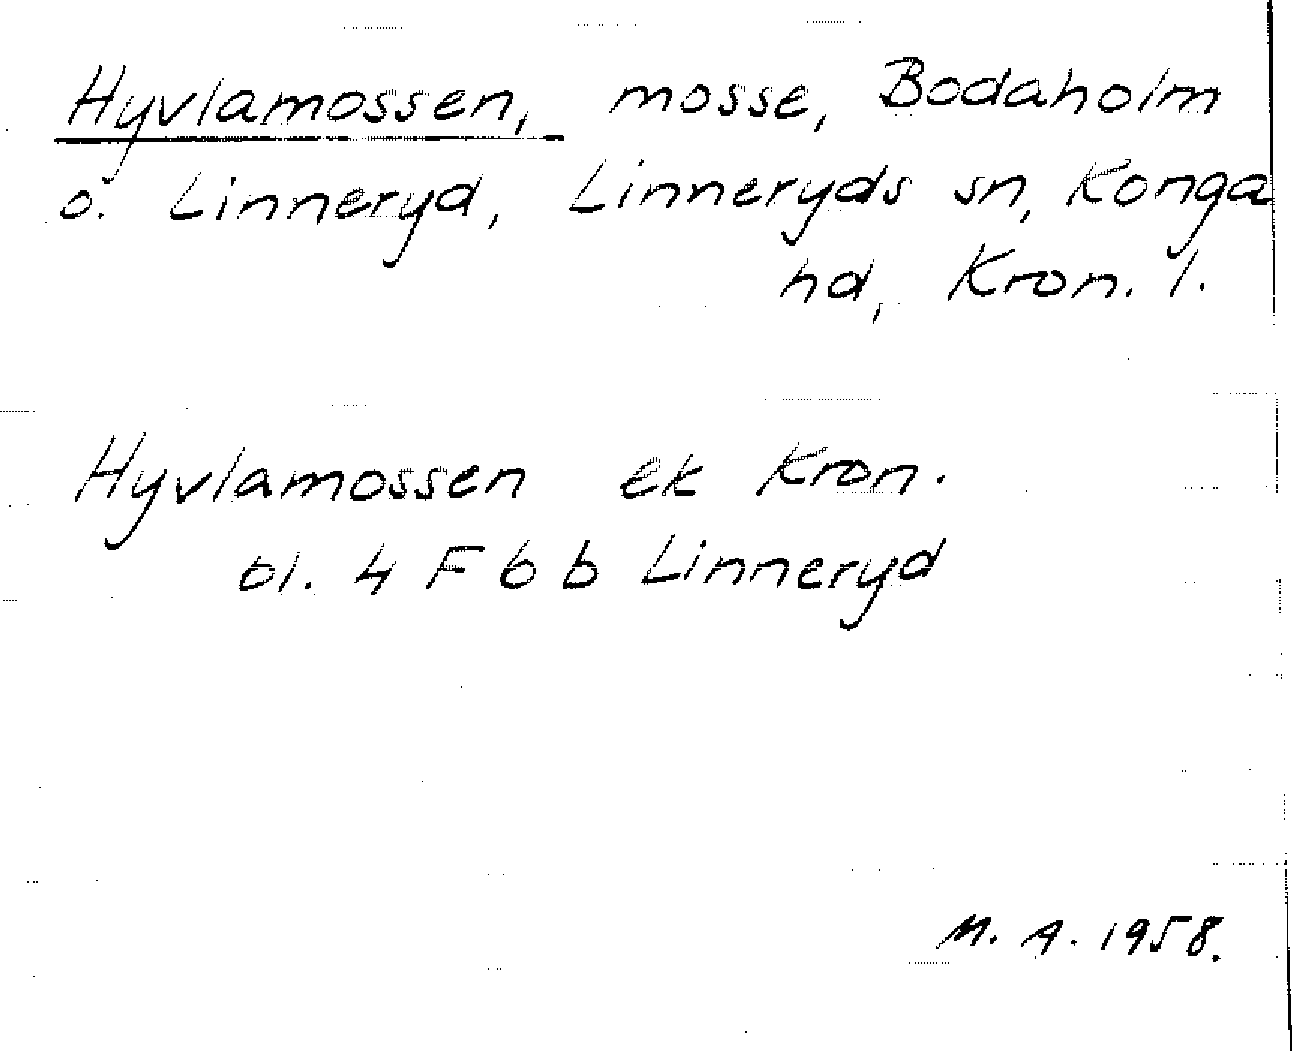 Hyvlamossen, mosse, Bodaholm
o. Linneryd, Linneryds sn, Konga
hd, Kron. l.
Hyvlamossen ek Kron.
bl. 4 F 6 b Linneryd
M. A. 1958.